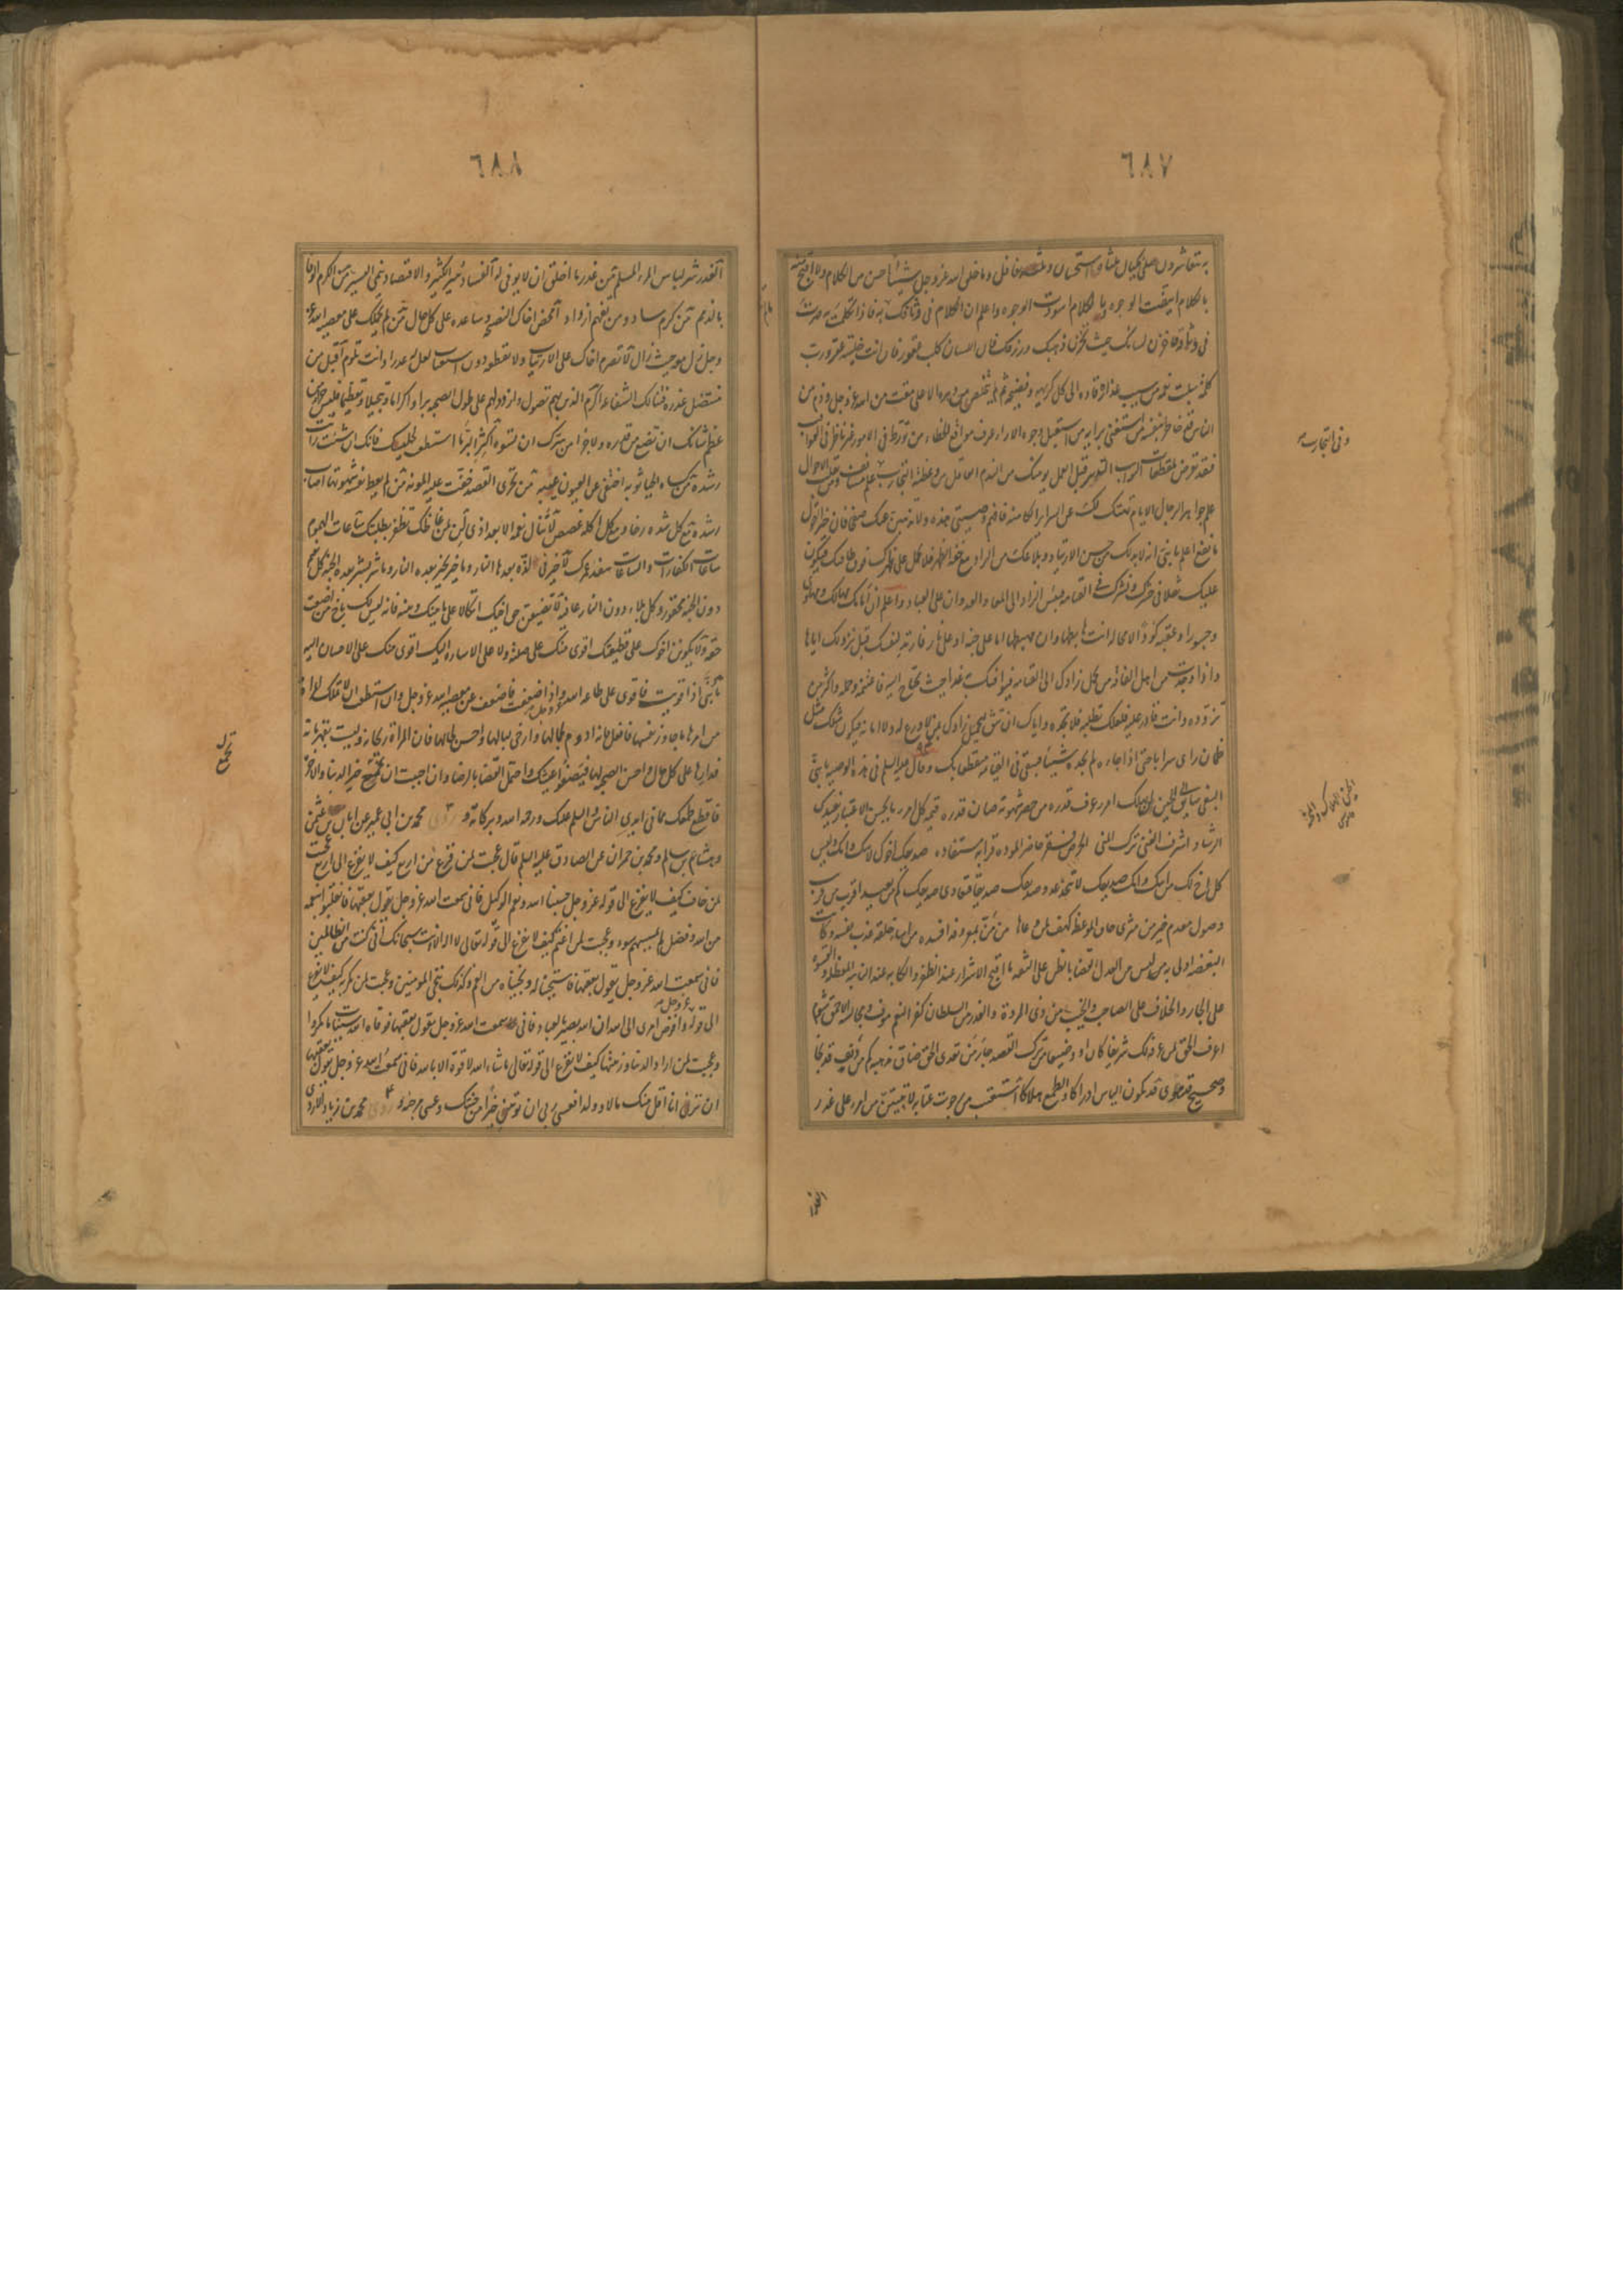 ٦٨٧
بالكلام ابيضت الوجوه وبالكلام اسودت الوجوه واعلم ان الكلام في وثاقك ما لم تتكلم به فاذا تكلمت به صرت
في وثاقه فاخزن لسانك كما تخزن ذهبك وورقك فان اللسان كلب عقور فان انت خليته عقر ورب
كلمة سلبت نعمة من سيب عذاره قاده الى كل كريهة وفضيحة ثم لم يخلص من دهره الا على مقت من الله عز وجل وذم من
الناس قد خاطر بنفسه من استغنى برايه من استقبل وجوه الاراء عرف مواقع الخطاء من تورط في الامور غير ناظر في العواقب
فقد تعرض لمفظعات النوائب التدبير قبل العمل يومنك من الندم العاقل من وعظته التجارب في التجارب علم مستانف وفي تقلب الاحوال
علم جواهر الرجال الايام تهتك لك عن السراير الكامنة فافهم وصيتي هذه ولا تذهبن عنك صفحا فان خير القول
ما نفع اعلم يا بني انه لا بد لك من حسن الارتياد وبلاغك من الزاد مع خفة الظهر فلا تحمل على ظهرك فوق طاقتك فيكون
عليك ثقلا في حشرك ونشرك في القيامة فبئس الزاد الى المعاد العدوان على العباد واعلم ان امامك مهالك ومهاوي
وجسورا وعقبة كؤدا لا محالة انت هابطها وان مهبطها اما على جنة او على نار فارتد لنفسك قبل نزولك اياها
واذا وجدت من اهل الفاقة من يحمل زادك الى القيامة فيوافيك به غدا حيث تحتاج اليه فاغتنمه وحمله واكثر من
تزوده وانت قادر عليه فلعلك تطلبه فلا تجده واياك ان تثق لتحميل زادك بمن لا ورع له ولا امانة فيكون مثلك مثل
ظمان راى سرابا حتى اذا جاءه لم يجده شيئا فتبقى في القيامة منقطعا بك وقال عليه السلم في هذه الوصية يا بني
البغي سايق الى الحين لن يهلك امرء عرف قدره من حصن شهوته صان قدره قيمة كل امرء ما يحسن الاعتبار يفيدك
الرشاد اشرف الغنى ترك المنى الحرص فقر حاضر المودة قرابة مستفادة صديقك اخوك لابيك وامك وليس
كل اخ لك من ابيك وامك صديقك لا تتخذن عدو صديقك صديقا فتعادي صديقك كم من بعيد اقرب من قريب
وصول معدم خير من مثر جاف الموعظة كهف لمن وعاها من من بمعروفه افسده من اساء خلقه عذب نفسه وكانت
البغضة اولى به ليس من العدل القضاء بالظن على الثقة ما اقبح الاشر عند الظفر والكابة عند النائبة المعضلة والقسوة
على الجار والخلاف على الصاحب والحنث من ذي المروة والغدر من السلطان كفر النعم موق ومجالسة الاحمق شوم
اعرف الحق لمن عرفه لك شريفا كان او وضيعا من ترك القصد جار من تعدى الحق ضاق مذهبه كم من دنف قد نجا
وصحيح قد هوى قد يكون الياس ادراكا والطمع هلاكا استعتب من رجوت عتابه لا تبيتن من امرء على غدر
وفي التجارب
الغدر
٦٨٨
الغدر شر لباس المرء المسلم من غدر ما اخلق ان لا يوفى له الفساد يبير الكثير والاقتصاد ينمي اليسير من الكرم الوفا
بالذمم من كرم ساد ومن تفهم ازداد امحض اخاك النصيحة وساعده على كل حال ما لم يحملك على معصية الله عز
وجل زل معه حيث زال لا تصرم اخاك على ارتياب ولا تقطعه دون استعتاب لعل له عذرا وانت تلوم اقبل من
متنصل عذره فتنالك الشفاعة اكرم الذين بهم تصول وازدد لهم على طول الصحبة برا واكراما وتبجيلا وتعظيما فليس جزاء من
عظم شانك ان تضع من قدره ولا جزاء من سرك ان تسوءه اكثر البر ما استطعت لجليسك فانك اذا شئت رايت
رشده من كساه الحياء ثوبه اختفى عن العيون عيبه من تحرى القصد خفت عليه المونة من لم يعط نفسه شهوتها اصاب
رشده مع كل شدة رخاء ومع كل اكلة غصص لا تنال نعمة الا بعد اذى لن لمن غاظك تظفر بطلبتك ساعات الهموم
ساعات الكفارات والساعات تنفد عمرك لا خير في لذة بعدها النار وما خير بخير بعده النار وما شر بشر بعده الجنة كل نعيم
دون الجنة محقور وكل بلاء دون النار عافية لا تضيعن حق اخيك اتكالا على ما بينك وبينه فانه ليس لك باخ من اضعت
حقه ولا يكونن اخوك على قطيعتك اقوى منك على صلته ولا على الاساءة اليك اقوى منك على الاحسان اليه
يا بني اذا قويت فاقو على طاعة الله عز وجل واذا ضعفت فاضعف عن معصية الله عز وجل وان استطعت ان لا تملك المراة
من امرها ما جاوز نفسها فافعل فانه ادوم لجمالها وارخى لبالها واحسن لحالها فان المراة ريحانة وليست بقهرمانة
فدارها على كل حال واحسن الصحبة لها فيصفو عيشك واحتمل القضاء بالرضا وان احببت ان تجمع خير الدنيا والاخرة
فاقطع طمعك مما في ايدي الناس والسلم عليك ورحمة الله وبركاته وروى محمد بن ابي عمير عن ابان بن عثمن
وهشام بن سالم ومحمد بن حمران عن الصادق عليه السلم قال عجبت لمن فزع من اربع كيف لا يفزع الى اربع عجبت
لمن خاف كيف لا يفزع الى قوله عز وجل حسبنا الله ونعم الوكيل فاني سمعت الله عز وجل يقول بعقبها فانقلبوا بنعمة
من الله وفضل لم يمسسهم سوء وعجبت لمن اغتم كيف لا يفزع الى قوله تعالى لا اله الا انت سبحانك اني كنت من الظالمين
فاني سمعت الله عز وجل يقول بعقبها فاستجبنا له ونجيناه من الغم وكذلك ننجي المومنين وعجبت لمن مكر به كيف لا يفزع
الى قوله عز وجل وافوض امري الى الله ان الله بصير بالعباد فاني سمعت الله عز وجل يقول بعقبها فوقاه الله سيئات ما مكروا
وعجبت لمن اراد الدنيا وزينتها كيف لا يفزع الى قوله تعالى ما شاء الله لا قوة الا بالله فاني سمعت الله عز وجل يقول بعقبها
ان ترن انا اقل منك مالا وولدا فعسى ربي ان يوتين خيرا من جنتك وعسى موجبة وروى محمد بن زياد الازدي
تجمع